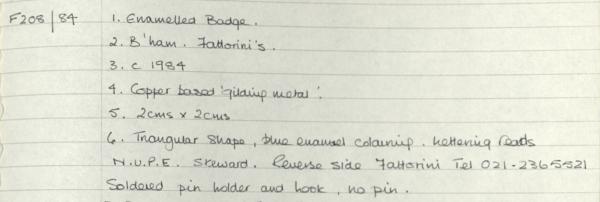 F208/84 1. Enamelled Badge.
2. B'ham. Fattorini's.
3. c 1984
4. Copper based 'gilding metal'.
5. 2cms x 2cms
6. Triangular shape, blue enamel colouring. Lettering reads
N.U.P.E. Steward. Reverse side Fattorini Tel 021-2365521
Soldered pin holder and hook, no pin.